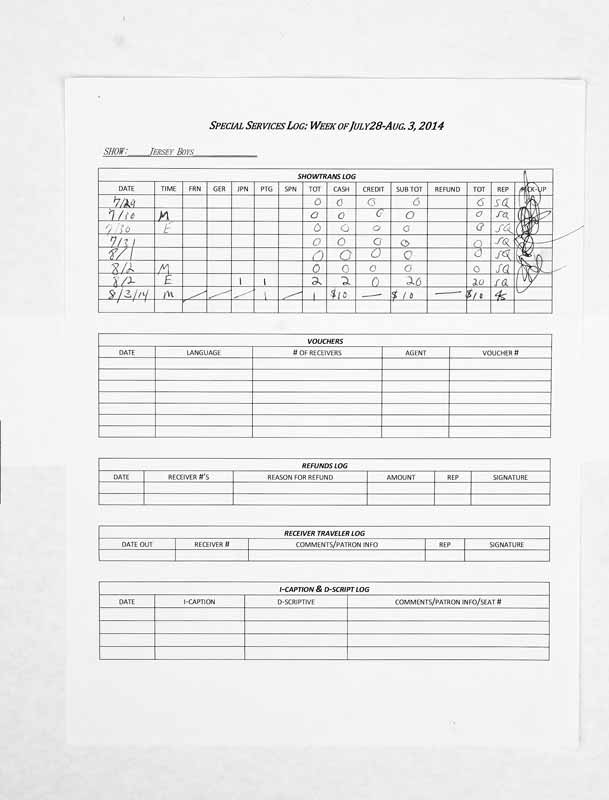 SPECIAL SERVICES LOG: WEEK OF JULY28-AUG. 3, 2014
SHOW:____JERSEY BOYS____________
SHOWTRANS LOG
DATE TIME FRN GER JPN PTG SPN TOT CASH CREDIT SUB TOT REFUND TOT REP PICK-UP
7/29 0 0 0 0 0 SQ
7/30 M 0 0 0 0 0 SQ
7/30 E 0 0 0 0 0 SQ
7/31 0 0 0 0 0 SQ
8/1 0 0 0 0 0 SQ
8/2 M 0 0 0 0 0 SQ
8/2 E 1 1 2 2 0 20 20 SQ
8/3/14 M 1 1 $10 — $10 — $10
VOUCHERS
DATE LANGUAGE # OF RECEIVERS AGENT VOUCHER #
REFUNDS LOG
DATE RECEIVER #'S REASON FOR REFUND AMOUNT REP SIGNATURE
RECEIVER TRAVELER LOG
DATE OUT RECEIVER # COMMENTS/PATRON INFO REP SIGNATURE
I-CAPTION & D-SCRIPT LOG
DATE I-CAPTION D-SCRIPTIVE COMMENTS/PATRON INFO/SEAT #